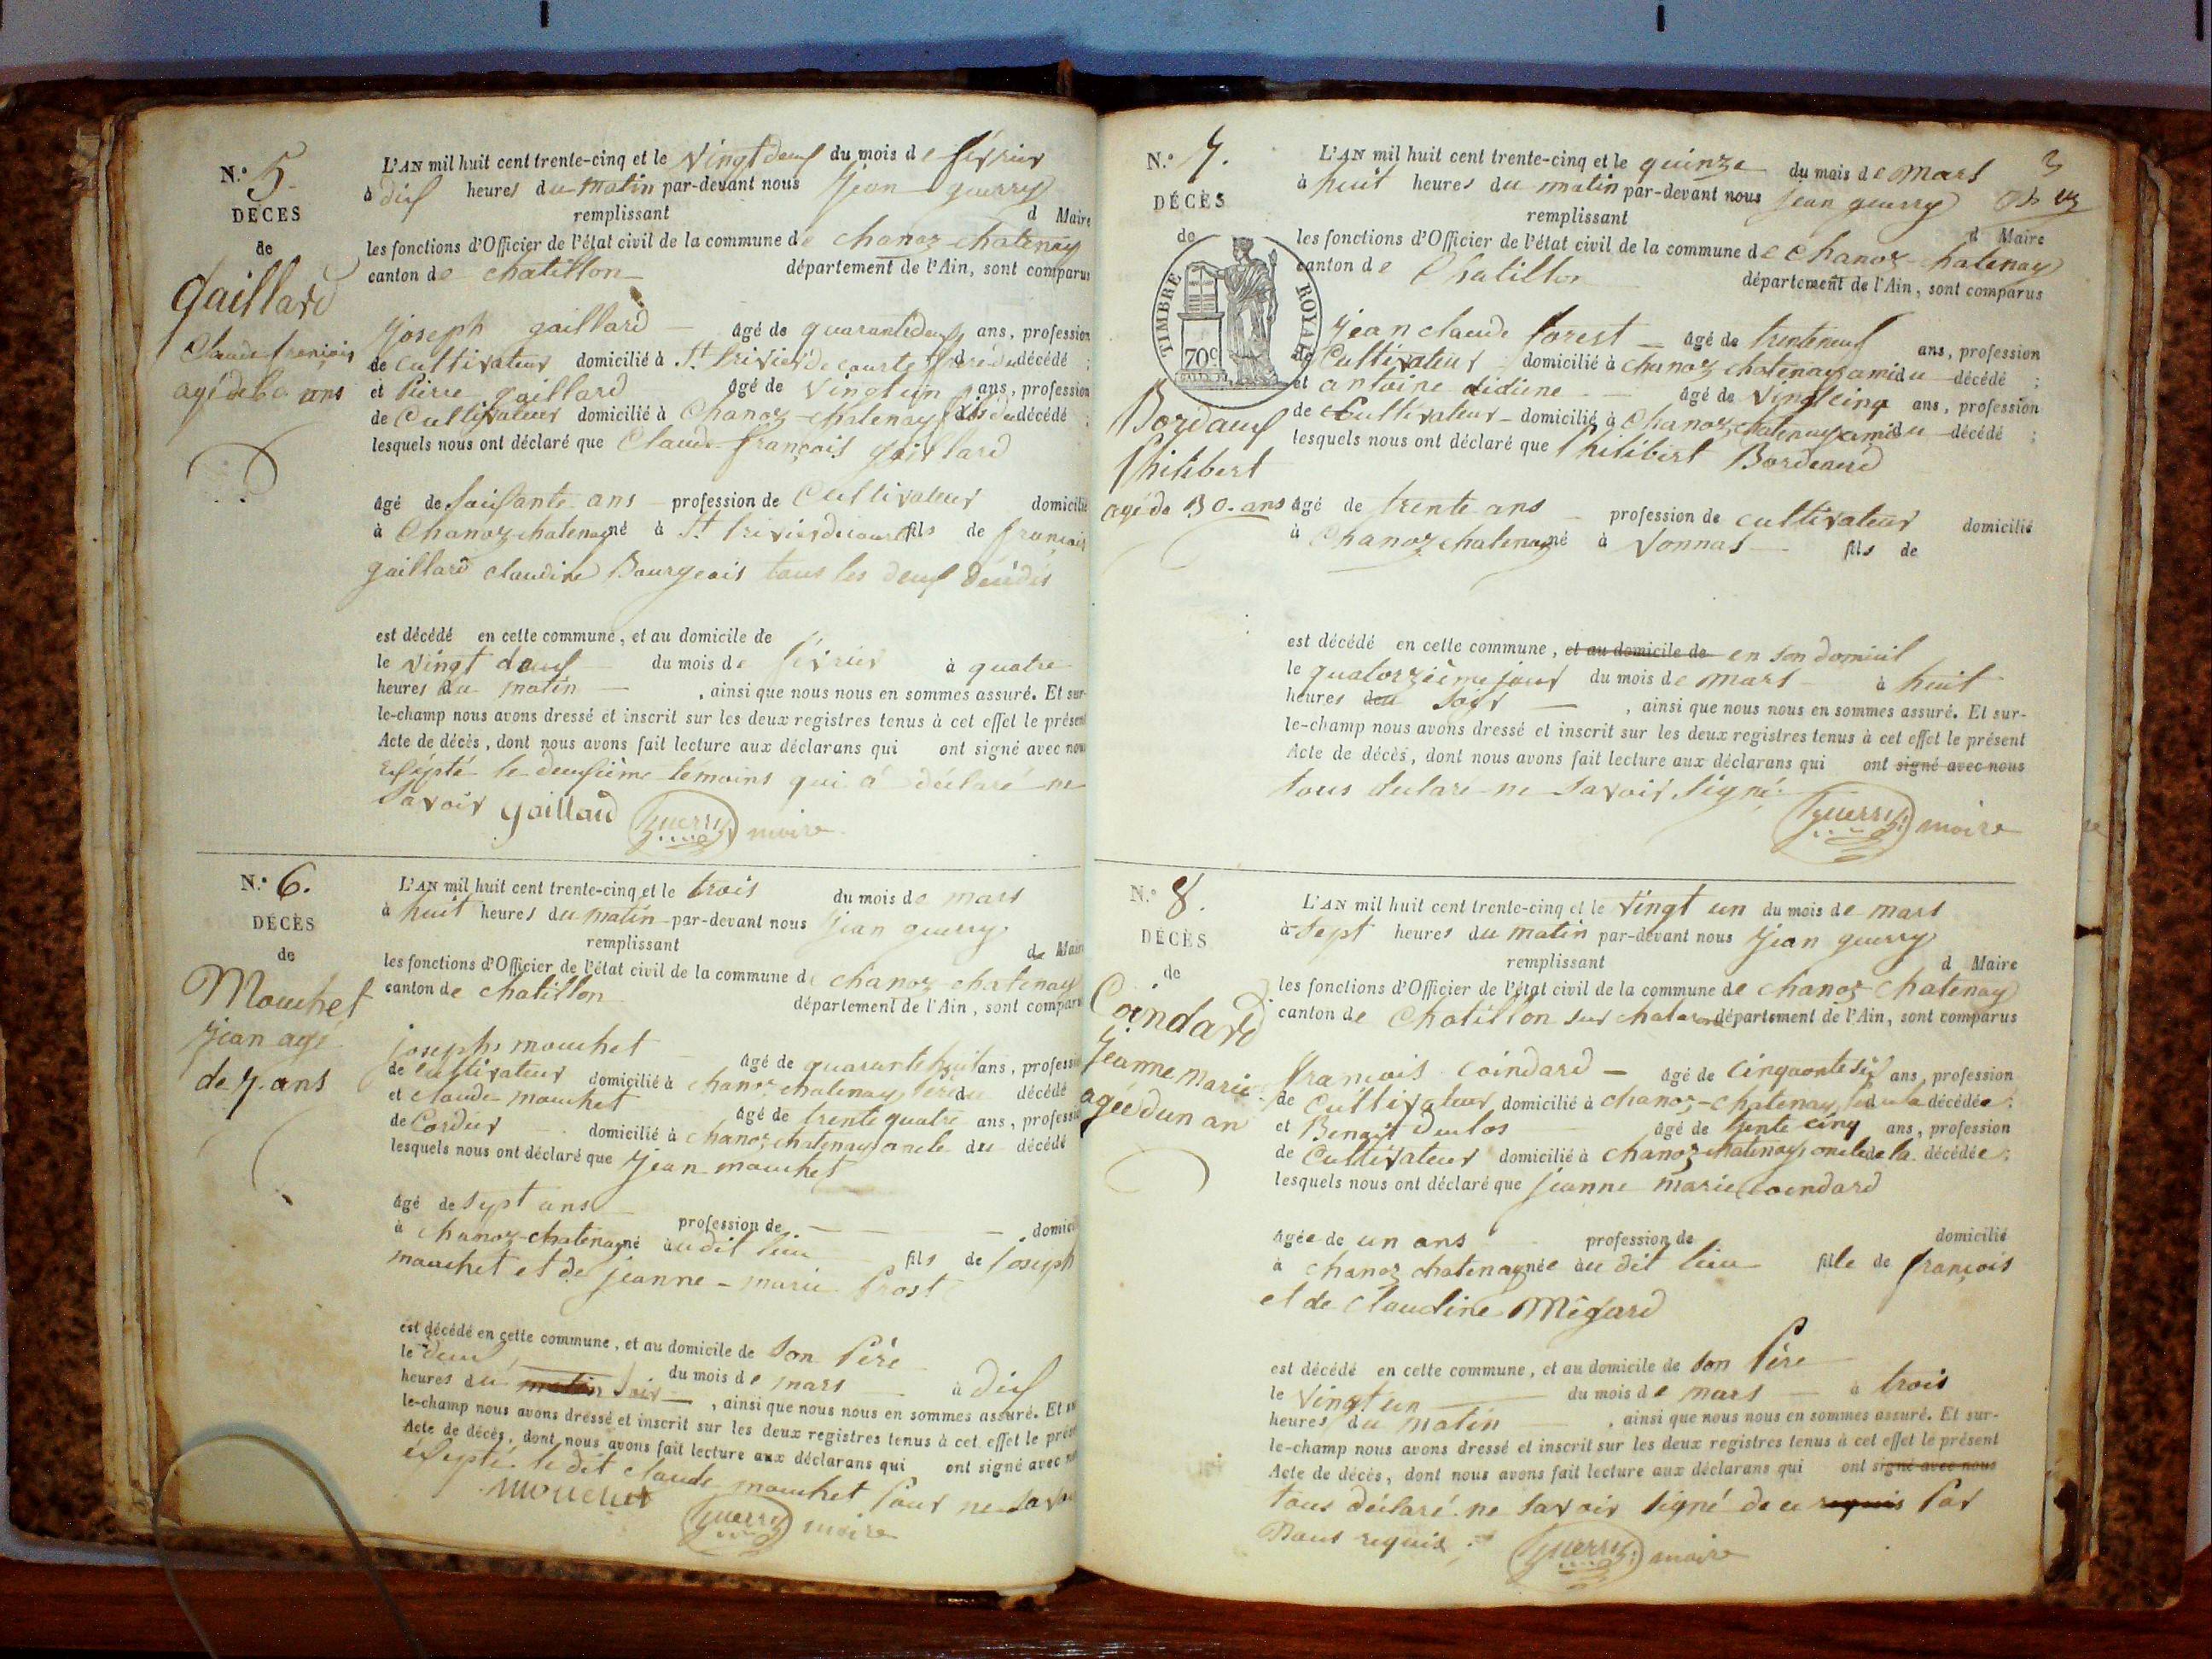 N.° 5.
DÉCÈS
de
Gaillard
Claude françois
agé de 60 ans
L'AN mil huit cent trente-cinq et le vingt deux du mois de février
à dix heures du matin par-devant nous Jean guerry
remplissant d Maire
les fonctions d'Officier de l'état civil de la commune de chanoz-chatenay
canton de chatillon département de l'Ain, sont comparus
joseph gaillard âgé de quarante deux ans, profession
de cultivateur domicilié à St. trivier de courte frère du décédé ;
et Pierre gaillard âgé de vingt un ans, profession
de Cultivateur domicilié à Chanoz-chatenay fils du décédé ;
lesquels nous ont déclaré que Claude françois gaillard
âgé de soixante ans profession de Cultivateur domicilié
à Chanoz chatenay né à St. trivier de courte fils de françois
gaillard claudine Bourgeois tous les deux décédés
est décédé en cette commune, et au domicile de
le vingt deux du mois de février à quatre
heures du matin , ainsi que nous nous en sommes assuré. Et sur-
le-champ nous avons dressé et inscrit sur les deux registres tenus à cet effet le présent
Acte de décès, dont nous avons fait lecture aux déclarans qui ont signé avec nous
exsépté le deuxième témoins qui à déclaré ne
savoir Gaillard Guerry maire
N.° 6.
DÉCÈS
de
Mouchet
jean agé
de 7. ans
L'AN mil huit cent trente-cinq et le trois du mois de mars
à huit heures du matin par-devant nous Jean guerry
remplissant de Maire
les fonctions d'Officier de l'état civil de la commune de chanoz chatenay
canton de chatillon département de l'Ain, sont comparus
joseph mouchet âgé de quarante huit ans, profession
de cultivateur domicilié à chanoz chatenay père du décédé
et claude mouchet âgé de trente quatre ans, profession
de Cordier domicilié à chanoz chatenay oncle du décédé
lesquels nous ont déclaré que jean mouchet
âgé de sept ans profession de domicilié
à chanoz-chatenay né au dit lieu fils de joseph
mouchet et de jeanne-marie Prost
est décédé en cette commune, et au domicile de son Père
le deux du mois de mars à dix
heures du matin soir , ainsi que nous nous en sommes assuré. Et sur
le-champ nous avons dressé et inscrit sur les deux registres tenus à cet effet le présent
Acte de décès, dont nous avons fait lecture aux déclarans qui ont signé avec nous
exsepté le dit claude mouchet Pour ne savoir
mouchet Guerry maire
3
N.° 7.
DÉCÈS
de
TIMBRE ROYAL
70c
Bordaux
Philibert
agé de 30. ans
L'AN mil huit cent trente-cinq et le quinze du mois de Mars
à huit heures du matin par-devant nous jean guerry
remplissant d Maire
les fonctions d'Officier de l'état civil de la commune de Chanoz chatenay
canton de Chatillon département de l'Ain, sont comparus
jean claude forest âgé de trenteneuf ans, profession
de Cultivateur domicilié à chanoz chatenay ami du décédé ;
et antoine didiene âgé de vingt cinq ans, profession
de Cultivateur domicilié à Chanoz chatenay ami du décédé ;
lesquels nous ont déclaré que Philibert Bordeaux
âgé de trente ans profession de cultivateur domicilié
à Chanoz chatenay né à Vonnas fils de
est décédé en cette commune, et au domicile de en son domicil
le quatorzième jour du mois de mars à huit
heures du soir , ainsi que nous nous en sommes assuré. Et sur-
le-champ nous avons dressé et inscrit sur les deux registres tenus à cet effet le présent
Acte de décès, dont nous avons fait lecture aux déclarans qui ont signé avec nous
tous declare ne savoir signé.
Guerry maire
N.° 8.
DÉCÈS
de
Coindard
jeanne marie
agée d'un an
L'AN mil huit cent trente-cinq et le vingt un du mois de mars
à sept heures du matin par-devant nous jean guerry
remplissant d Maire
les fonctions d'Officier de l'état civil de la commune de chanoz chatenay
canton de Chatillon sur chalaronne département de l'Ain, sont comparus
françois coindard âgé de cinquante six ans, profession
de cultivateur domicilié à chanoz-chatenay de la décédée ;
et Benoit âgé de trente cinq ans, profession
de Cultivateur domicilié à chanoz chatenay oncle de la décédée ;
lesquels nous ont déclaré que jeanne marie coindard
âgée de un ans profession de domicilié
à chanoz chatenay née au dit lieu fille de françois
et de claudine Mégard
est décédé en cette commune, et au domicile de son Père
le vingt un du mois de mars à trois
heures du matin , ainsi que nous nous en sommes assuré. Et sur-
le-champ nous avons dressé et inscrit sur les deux registres tenus à cet effet le présent
Acte de décès, dont nous avons fait lecture aux déclarans qui ont signé avec nous
tous déclaré ne savoir signé de ce requis Par
Nous requis Guerry maire